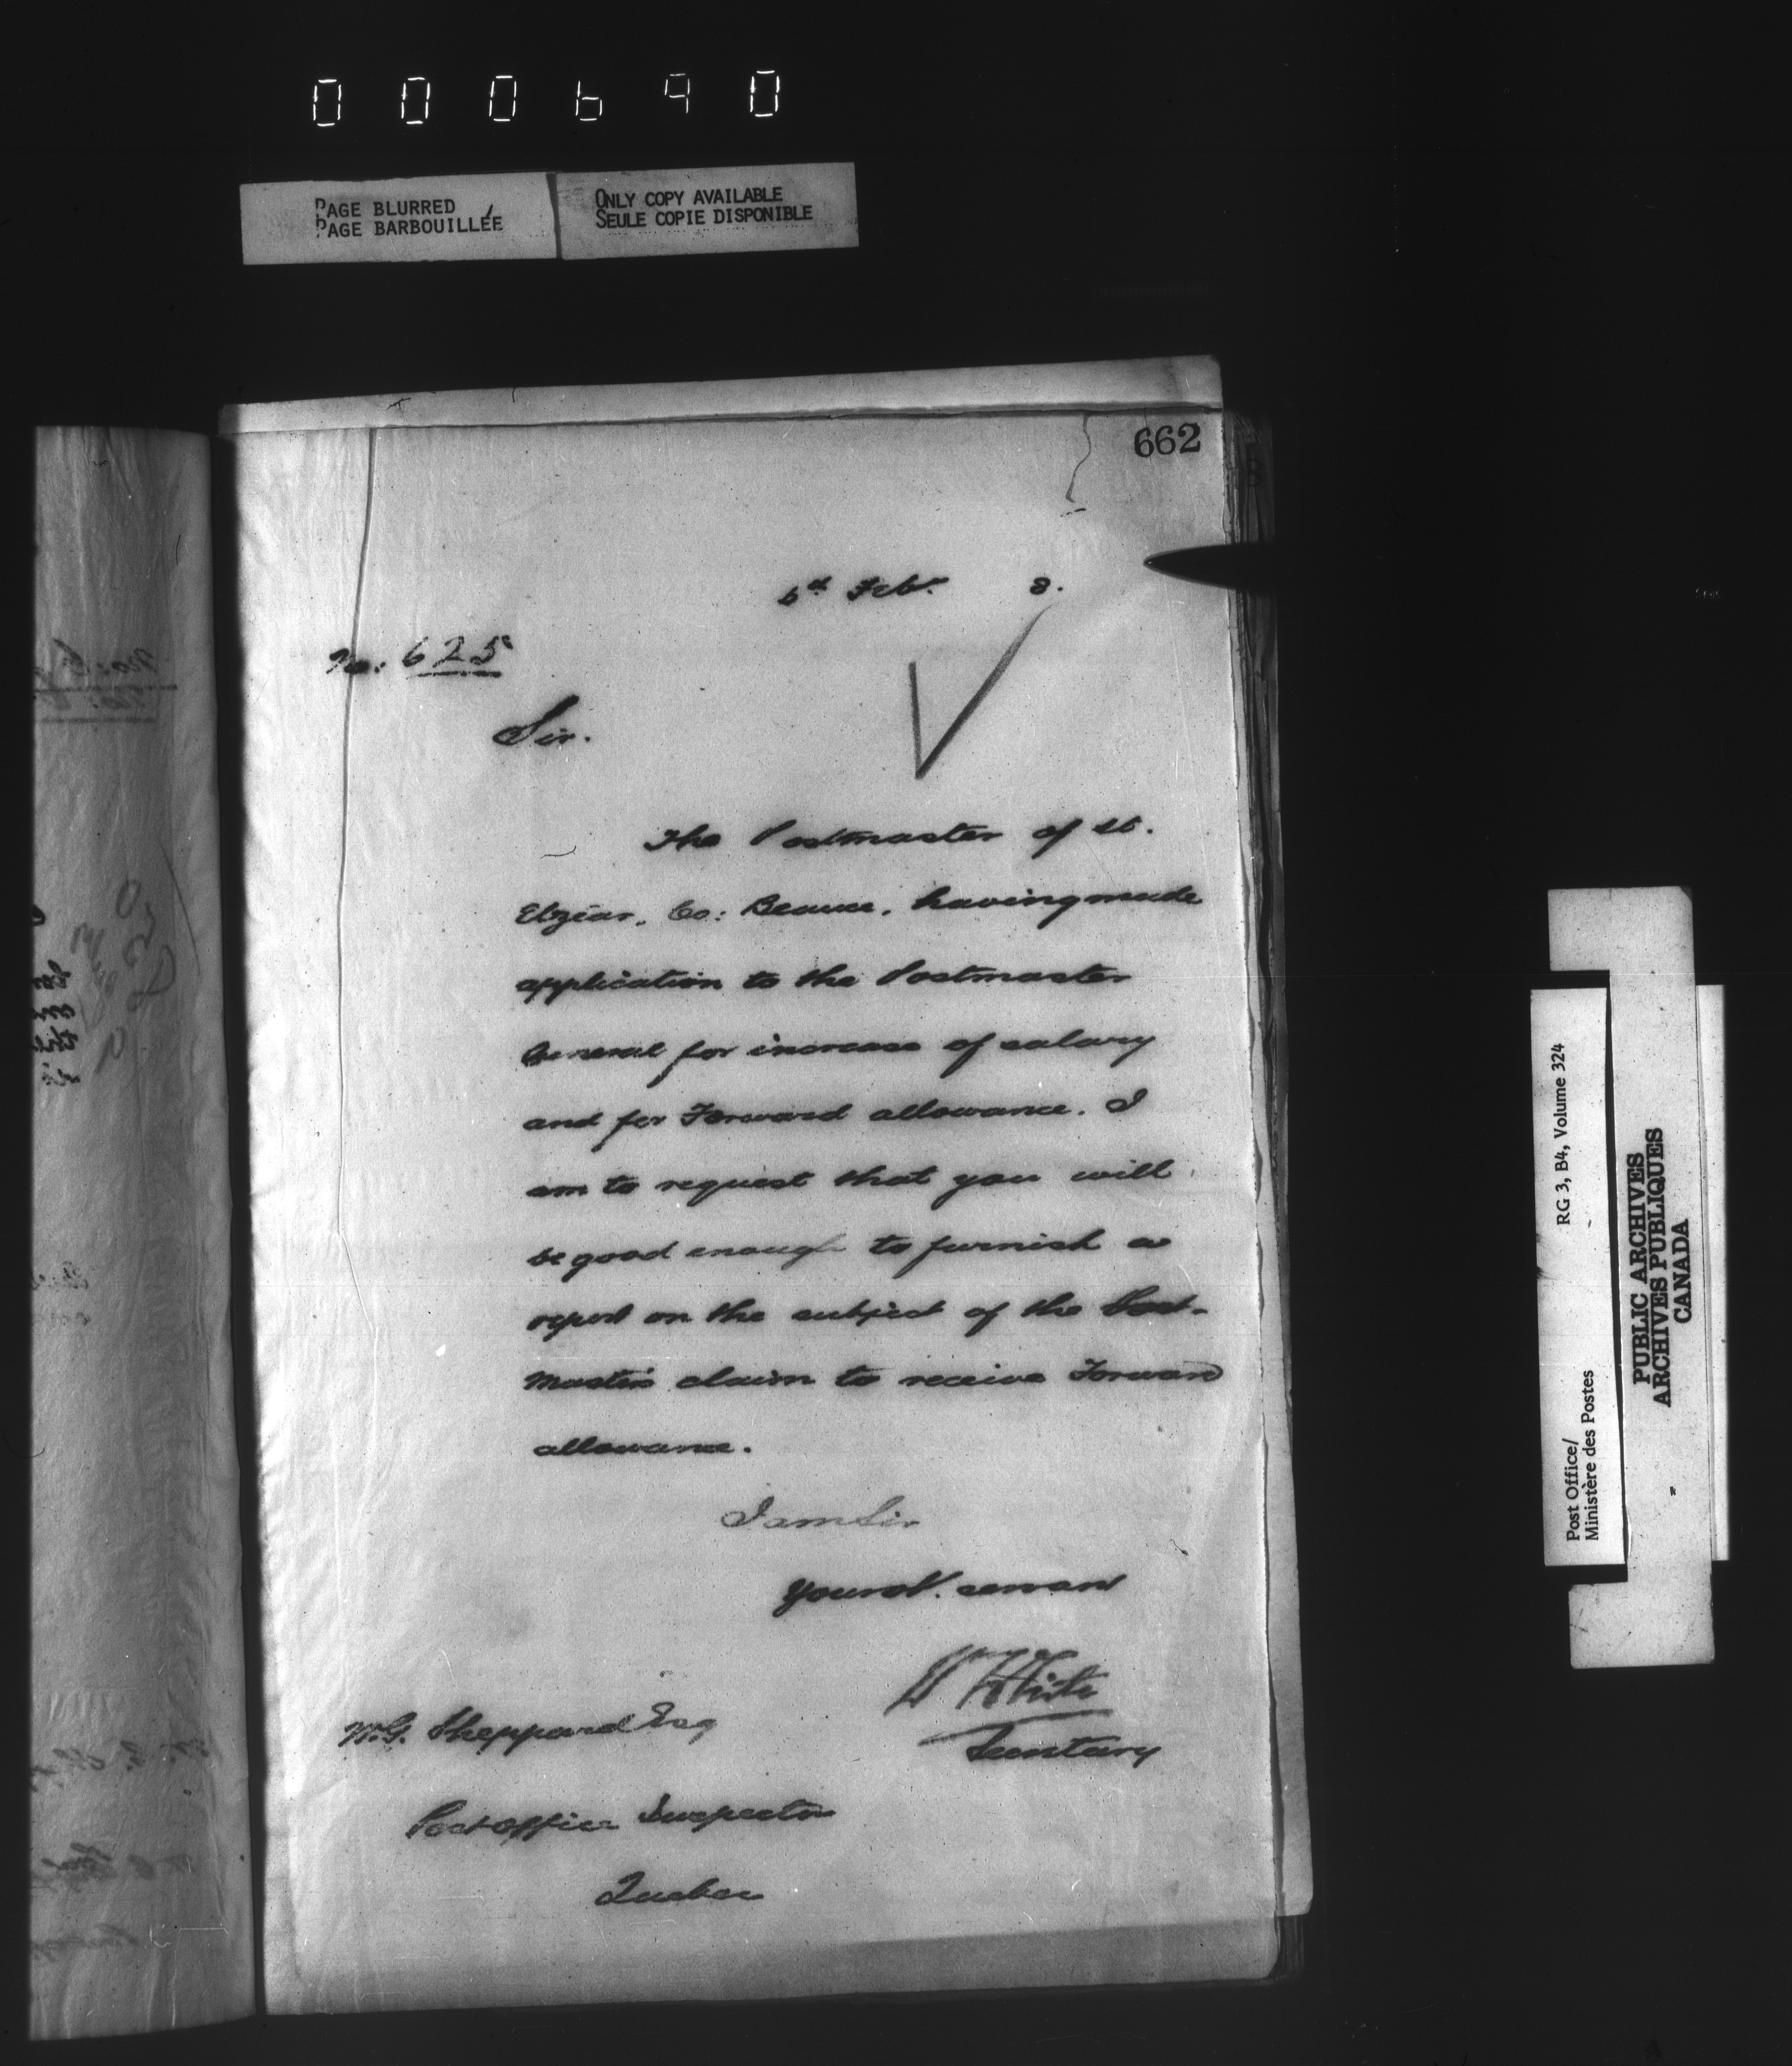 000690
PAGE BLURRED
PAGE BARBOUILLÉE
ONLY COPY AVAILABLE
SEULE COPIE DISPONIBLE
662
6th Feby. 8.
No: 625
Sir.
The Postmaster of St.
Elzéar, Co: Beauce, having made
application to the Postmaster
General for increase of salary
and for Forward allowance. I
am to request that you will
be good enough to furnish a
report on the subject of the Post-
Master's claim to receive Forward
allowance.
I am Sir
Your ob. servant
W White
Secretary
W.G. Sheppard Esq
Post Office Inspector
Quebec
Post Office/ RG 3, B4, Volume 324
Ministère des Postes
PUBLIC ARCHIVES
ARCHIVES PUBLIQUES
CANADA